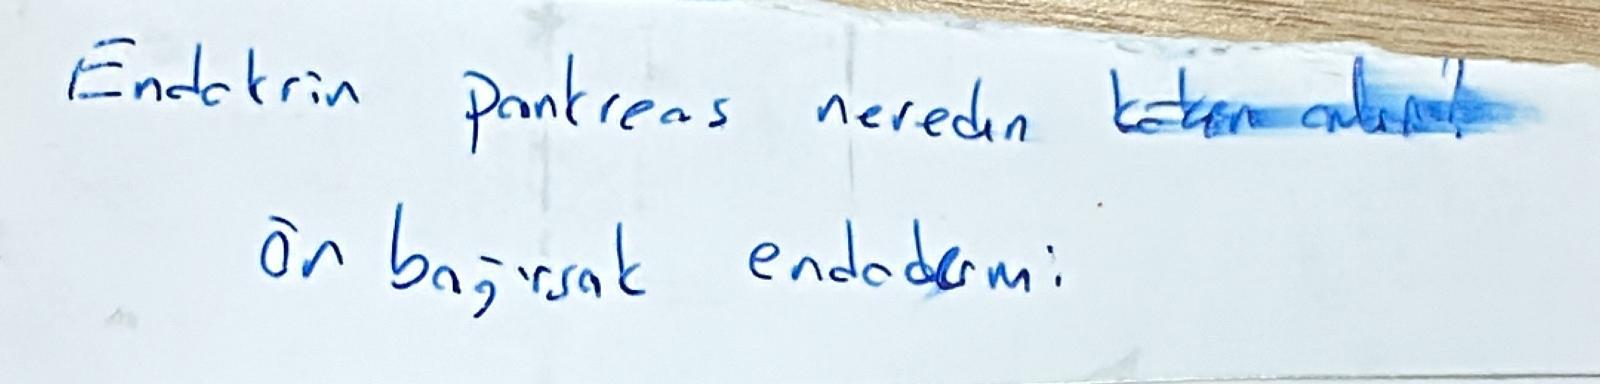 Endokrin pankreas nereden köken alır?
Ön bağırsak endodermi